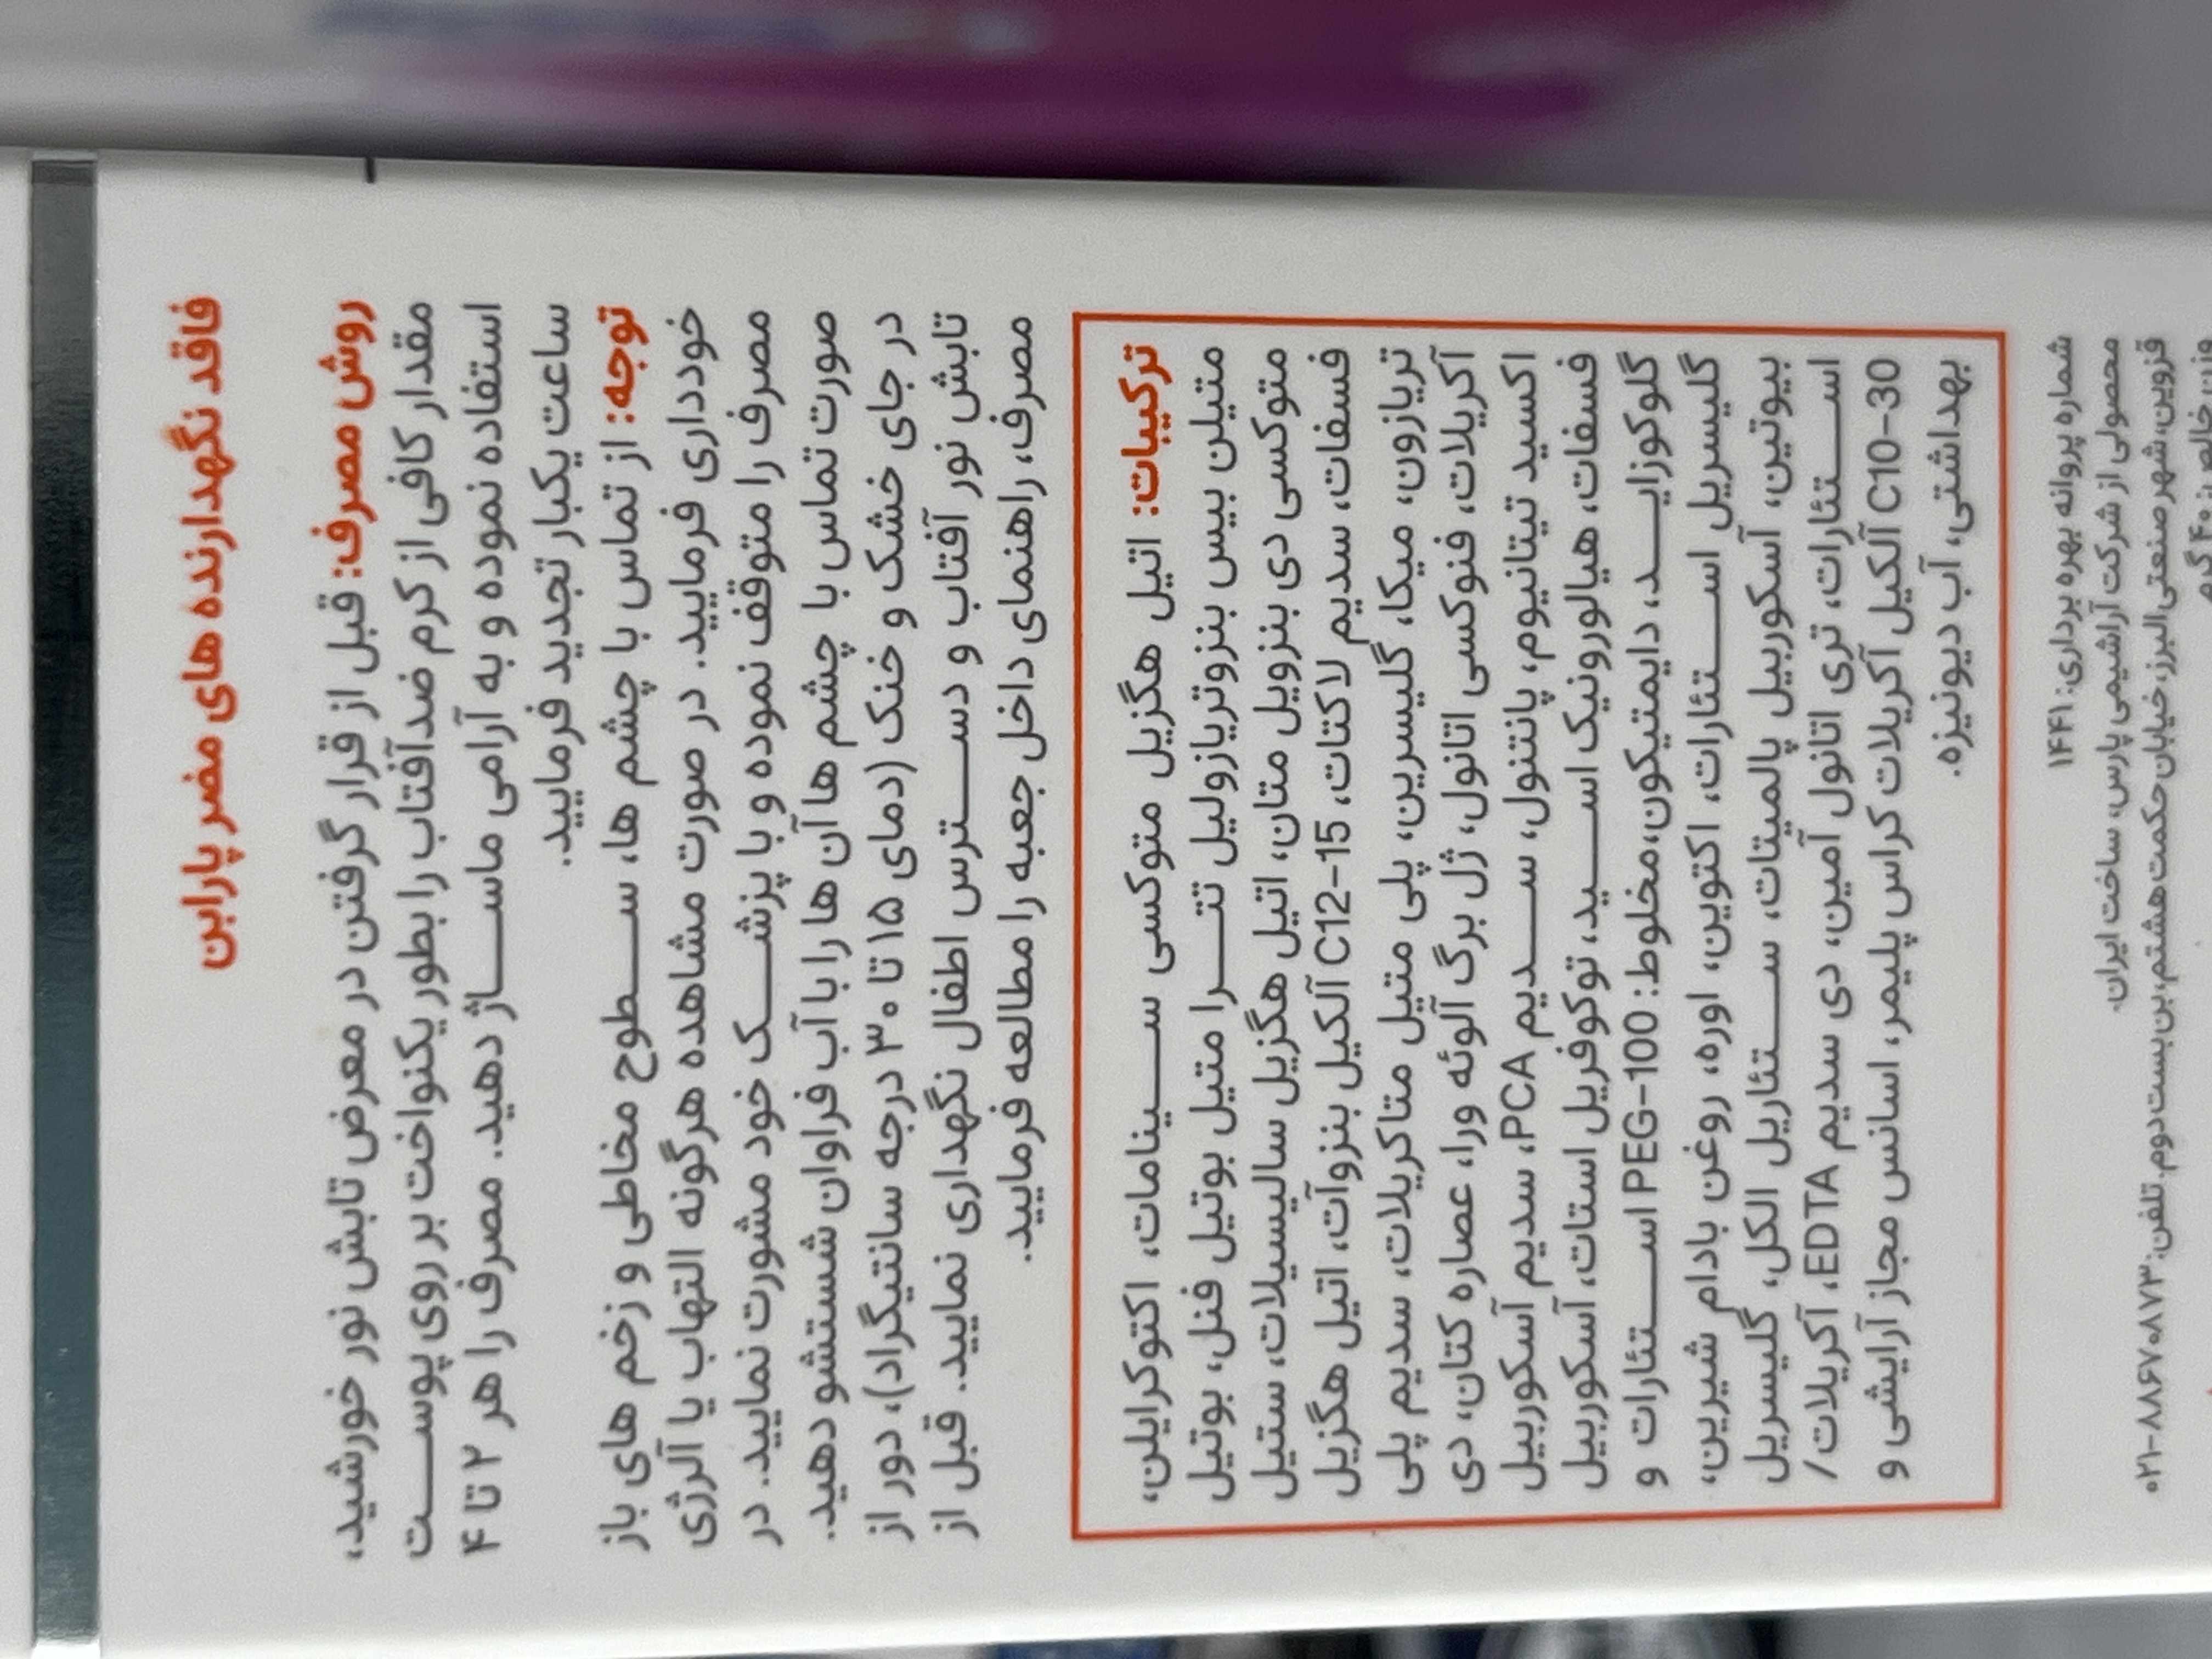 فاقد نگهدارنده های مضر پارابن
روش مصرف: قبل از قرار گرفتن در معرض تابش نور خورشید،
مقدار کافی از کرم ضدآفتاب را بطور یکنواخت بر روی پوست
استفاده نموده و به آرامی ماساژ دهید. مصرف را هر ۲ تا ۴
ساعت یکبار تجدید فرمایید.
توجه: از تماس با چشم ها، سطوح مخاطی و زخم های باز
خودداری فرمایید. در صورت مشاهده هرگونه التهاب یا آلرژی
مصرف را متوقف نموده و با پزشک خود مشورت نمایید. در
صورت تماس با چشم ها آن ها را با آب فراوان شستشو دهید.
در جای خشک و خنک (دمای ۱۵ تا ۳۰ درجه سانتیگراد)، دور از
تابش نور آفتاب و دسترس اطفال نگهداری نمایید. قبل از
مصرف، راهنمای داخل جعبه را مطالعه فرمایید.
ترکیبات: اتیل هگزیل متوکسی سینامات، اکتوکرایلن،
متیلن بیس بنزوتریازولیل تترا متیل بوتیل فنل، بوتیل
متوکسی دی بنزویل متان، اتیل هگزیل سالیسیلات، ستیل
فسفات، سدیم لاکتات، C12-15 آلکیل بنزوآت، اتیل هگزیل
تریازون، میکا، گلیسرین، پلی متیل متاکریلات، سدیم پلی
آکریلات، فنوکسی اتانول، ژل برگ آلوئه ورا، عصاره کتان، دی
اکسید تیتانیوم، پانتنول، سدیم PCA، سدیم آسکوربیل
فسفات، هیالورونیک اسید، توکوفریل استات، آسکوربیل
گلوکوزاید، دایمتیکون،مخلوط: PEG-100 استئارات و
گلیسریل استئارات، اکتوین، اوره، روغن بادام شیرین،
بیوتین، آسکوربیل پالمیتات، ستئاریل الکل، گلیسریل
استئارات، تری اتانول آمین، دی سدیم EDTA، آکریلات/
C10-30 آلکیل آکریلات کراس پلیمر، اسانس مجاز آرایشی و
بهداشتی، آب دیونیزه.
شماره پروانه بهره برداری: ۱۴۴۱
محصولی از شرکت آراشیمی پارس، ساخت ایران.
قزوین، شهر صنعتی البرز، خیابان حکمت هشتم، بن بست دوم. تلفن: ۸۸۶۷۰۸۷۳-۰۲۱
وزن خالص: ۴۰ گرم